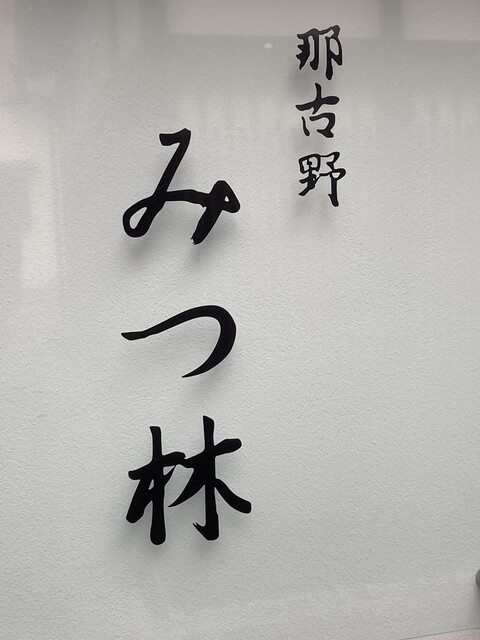 那古野
みつ林